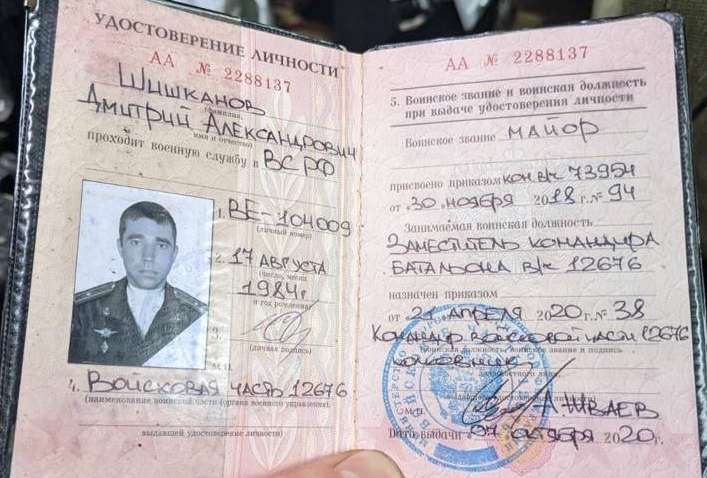 УДОСТОВЕРЕНИЕ ЛИЧНОСТИ
АА № 2288137
Шишканов
(фамилия,
Дмитрий Александрович
имя и отчество)
проходит военную службу в ВС РФ
1. ВЕ-104009
(личный номер)
2. 17 АВГУСТА
(число, месяц
1984г
и год рождения)
3.
(личная подпись)
М.П.
4. Войсковая часть 12676
(наименование воинской части (органа военного управления),
выдавшей удостоверение личности)
АА № 2288137
5. Воинское звание и воинская должность
при выдаче удостоверения личности
Воинское звание МАЙОР
присвоено приказом ком в/ч 73954
от «30» ноября 2018 г. № 94
Занимаемая воинская должность
Заместитель командира
батальона в/ч 12676
назначен приказом
от 21 АПРЕЛЯ 2020 г. № 38
Командир войсковой части 12676
(воинская должность, воинское звание и подпись
полковник
должностного лица,
А. Шваев
М.П.
Дата выдачи «07» октября 2020 г.